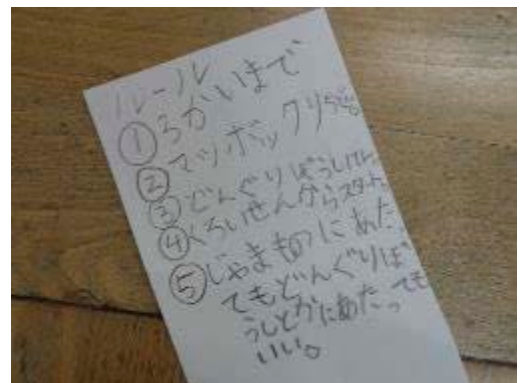 ルール
①3かいまで
②マツボックリ5てん
③どんぐりぼうし1てん
④くろいせんからスタート
⑤じゃまものにあたっ
てもどんぐりぼ
うしとかにあたっても
いい。